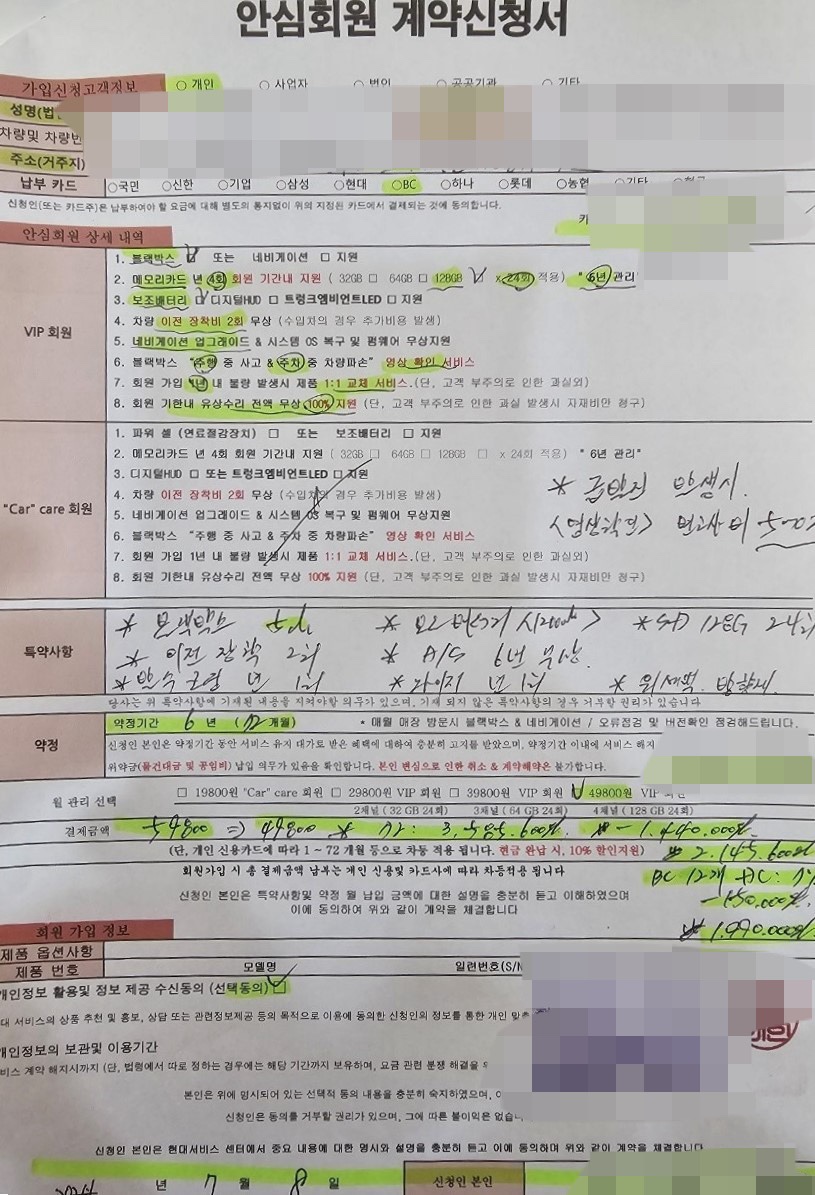 안심회원 계약신청서
가입신청고객정보 ○ 개인 ○ 사업자 ○ 법인 ○ 공공기관 ○ 기타
성명(법
차량및 차량번
주소(거주지)
납부 카드 ○국민 ○신한 ○기업 ○삼성 ○현대 ○BC ○하나 ○롯데 ○농협 ○기타
신청인(또는 카드주)은 납부하여야 할 요금에 대해 별도의 통지없이 위의 지정된 카드에서 결제되는 것에 동의합니다.
카
안심회원 상세 내역
VIP 회원
1. 블랙박스 ☑ 또는 네비게이션 □ 지원
2. 메모리카드 년 4회 회원 기간내 지원 ( 32GB □ 64GB □ 128GB ☑ x 24회 적용) " 6년 관리"
3. 보조배터리 ☑ 디지털HUD □ 트렁크엠비언트LED □ 지원
4. 차량 이전 장착비 2회 무상 (수입차의 경우 추가비용 발생)
5. 네비게이션 업그레이드 & 시스템 OS 복구 및 펌웨어 무상지원
6. 블랙박스 "주행 중 사고 & 주차 중 차량파손" 영상 확인 서비스
7. 회원 가입 1년 내 불량 발생시 제품 1:1 교체 서비스.(단, 고객 부주의로 인한 과실외)
8. 회원 기한내 유상수리 전액 무상 100% 지원 (단, 고객 부주의로 인한 과실 발생시 자재비만 청구)
"Car" care 회원
1. 파워 셀 (연료절감장치) □ 또는 보조배터리 □ 지원
2. 메모리카드 년 4회 회원 기간내 지원 ( 32GB □ 64GB □ 128GB □ x 24회 적용) " 6년 관리"
3. 디지털HUD □ 또는 트렁크엠비언트LED □ 지원
4. 차량 이전 장착비 2회 무상 (수입차의 경우 추가비용 발생)
5. 네비게이션 업그레이드 & 시스템 OS 복구 및 펌웨어 무상지원
6. 블랙박스 "주행 중 사고 & 주차 중 차량파손" 영상 확인 서비스
7. 회원 가입 1년 내 불량 발생시 제품 1:1 교체 서비스.(단, 고객 부주의로 인한 과실외)
8. 회원 기한내 유상수리 전액 무상 100% 지원 (단, 고객 부주의로 인한 과실 발생시 자재비만 청구)
* 급발진 발생시.
<영상확인>
특약사항
* 블랙박스 * 24회
* 이전 장착 2회 * A/S 6년 무상.
년 1회 년 1회
당사는 위 특약사항에 기재된 내용을 지켜야할 의무가 있으며, 기재 되지 않은 특약사항의 경우 거부할 권리가 있습니다
약정
약정기간 6 년 (72 개월) * 매월 매장 방문시 블랙박스 & 네비게이션 / 오류점검 및 버전확인 점검해드립니다.
신청인 본인은 약정기간 동안 서비스 유지 대가로 받은 혜택에 대하여 충분히 고지를 받았으며, 약정기간 이내에 서비스 해지
위약금(물건대금 및 공임비) 납입 의무가 있음을 확인합니다. 본인 변심으로 인한 취소 & 계약해약은 불가합니다.
월 관리 선택 □ 19800원 "Car" care 회원 □ 29800원 VIP 회원 □ 39800원 VIP 회원 ☑ 49800원 VIP 회원
2채널 ( 32 GB 24회) 3채널 ( 64 GB 24회) 4채널 (128 GB 24회)
결제금액 54800 => 49800 * 72: 3,585,600원. -1,440,000원.
(단, 개인 신용카드에 따라 1 ~ 72 개월 등으로 차등 적용 됩니다. 현금 완납 시, 10% 할인지원) 2,145,600원
회원가입 시 총 결제금액 납부는 개인 신용및 카드사에 따라 차등적용 됩니다 BC 12개
신청인 본인은 특약사항및 약정 월 납입 금액에 대한 설명을 충분히 듣고 이해하였으며 -150,000원.
이에 동의하여 위와 같이 계약을 체결합니다
1,990,000원
회원 가입 정보
제품 옵션사항
제품 번호 모델명 일련번호(S/N
개인정보 활용및 정보 제공 수신동의 (선택동의) ☑
대 서비스의 상품 추천 및 홍보, 상담 또는 관련정보제공 등의 목적으로 이용에 동의한 신청인의 정보를 통한 개인 맞춤
개인정보의 보관및 이용기간
비스 계약 해지시까지 (단, 법령에서 따로 정하는 경우에는 해당 기간까지 보유하며, 요금 관련 분쟁 해결을 위
본인은 위에 명시되어 있는 선택적 동의 내용을 충분히 숙지하였으며,
신청인은 동의를 거부할 권리가 있으며, 그에 따른 불이익은 없습니
신청인 본인은 현대서비스 센터에서 중요 내용에 대한 명시와 설명을 충분히 듣고 이에 동의하며 위와 같이 계약을 체결합니다.
년 7 월 8 일 신청인 본인